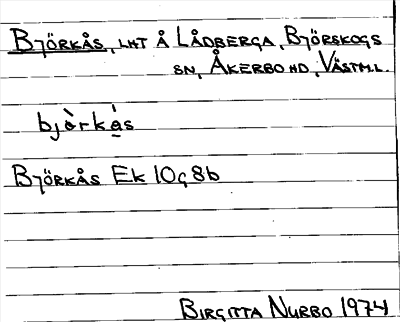 Björkås, lht å Lådberga, Björskogs
sn, Åkerbo hd, Västml.
bjὸrkås
Björkås Ek 10g8b
Birgitta Nurbo 1974